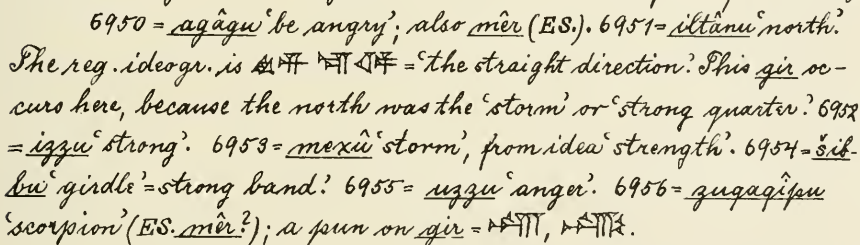 6950 = agâgu ‘be angry’; also mêr (ES.). 6951 = iltânu ‘north’.
The reg. ideogr. is = ‘the straight direction’. This gir oc-
curs here, because the north was the ‘storm’ or ‘strong quarter’. 6952
= izzu ‘strong’. 6953 = mexû ‘storm’, from idea ‘strength’. 6954 = šib-
bu ‘girdle’ = strong band? 6955 = uzzu ‘anger’. 6956 = zuqaqîpu
‘scorpion’ (ES. mêr?); a pun on gir =